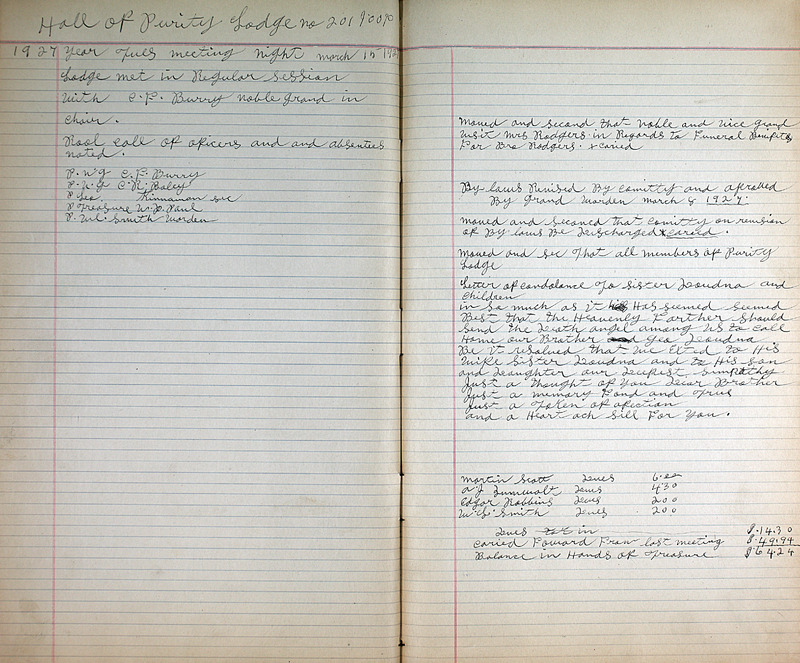 Hall of Purity Lodge no 201 I.O.O.F.
1927 year Tues meeting night march 15 192
Lodge met in Regular session
With C.F. Burry noble grand in
chair.
Rool call of oficers and and absentees
noted.
P. N G C.F. Burry
P. V. G C.R. Baley
P Sec. Kinnamon sec
P Treasure W.P. Paul
P. W. Smith Worden
moved and second that noble and vice grand
visit Mrs Rodgers in Regards to Funeral Benefits
For Bro Rodgers. & caried
By laws Revised By comitty and aproved
By Grand Worden march 8 1927.
moved and seconed that comitty on revision
of By laws Be Descharged & caried.
Moved and sec that all members of Purity
Lodge
Letter of condalance to sister Doudna and
children
in so much as it Has seemed seemed
Best that the Heavenly Farther should
send the Death angel among us to call
Home our Brother Geo Doudna
Be it resolved that we Exted to His
Wife Sister Doudna and to His son
and Daughter our Deepest simpathy
Just a thought of you Dear Brother
Just a memory Fond and True
Just a Token of afection
and a Heart ach still For You.
Martin Scott Dues 6.00
A J Zumwalt Dues 4 30
Edgar Robbins Dues 2 00
W. G. Smith Dues 2 00
Dues in $.14.30
caried Foward From last meeting $.49.94
Balance in Hands of Treasure $64.24